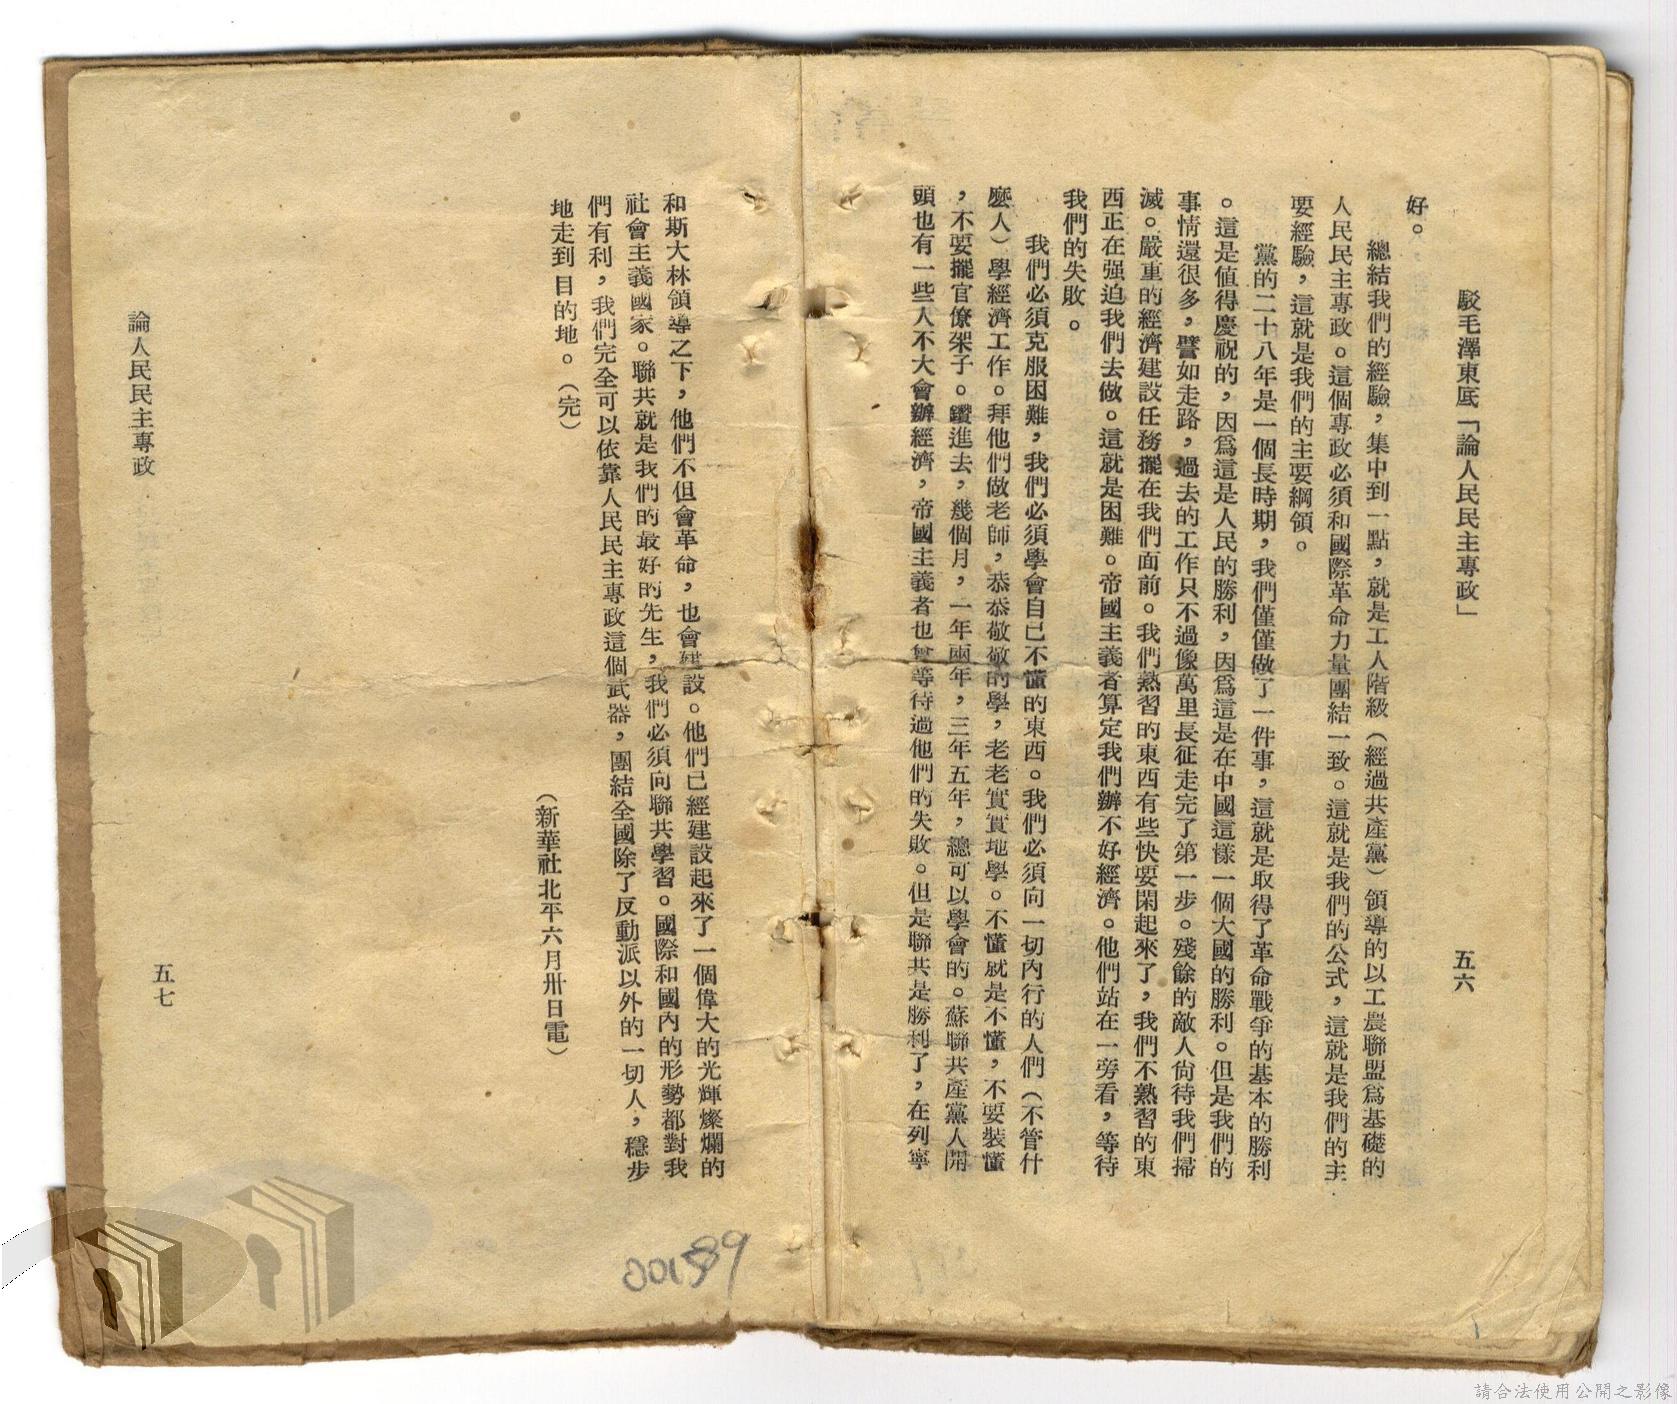 駁毛澤東底「論人民民主專政」
五六
好。
總結我們的經驗，集中到一點，就是工人階級（經過共產黨）領導的以工農聯盟爲基礎的
人民民主專政。這個專政必須和國際革命力量團結一致。這就是我們的公式，這就是我們的主
要經驗，這就是我們的主要綱領。
黨的二十八年是一個長時期，我們僅僅做了一件事，這就是取得了革命戰爭的基本的勝利
。這是值得慶祝的，因爲這是人民的勝利，因爲這是在中國這樣一個大國的勝利。但是我們的
事情還很多，譬如走路，過去的工作只不過像萬里長征走完了第一步。殘餘的敵人尙待我們掃
滅。嚴重的經濟建設任務擺在我們面前。我們熟習的東西有些快要閑起來了，我們不熟習的東
西正在强迫我們去做。這就是困難。帝國主義者算定我們辦不好經濟。他們站在一旁看，等待
我們的失敗。
我們必須克服困難，我們必須學會自己不懂的東西。我們必須向一切內行的人們（不管什
麽人）學經濟工作。拜他們做老師，恭恭敬敬的學，老老實實地學。不懂就是不懂，不要裝懂
，不要擺官僚架子。鑽進去，幾個月，一年兩年，三年五年，總可以學會的。蘇聯共產黨人開
頭也有一些人不大會辦經濟，帝國主義者也曾等待過他們的失敗。但是聯共是勝利了，在列寧
和斯大林領導之下，他們不但會革命，也會建設。他們已經建設起來了一個偉大的光輝燦爛的
社會主義國家。聯共就是我們的最好的先生，我們必須向聯共學習。國際和國內的形勢都對我
們有利，我們完全可以依靠人民民主專政這個武器，團結全國除了反動派以外的一切人，穩步
地走到目的地。（完）
（新華社北平六月卅日電）
論人民民主專政
五七
001589
請合法使用公開之影像